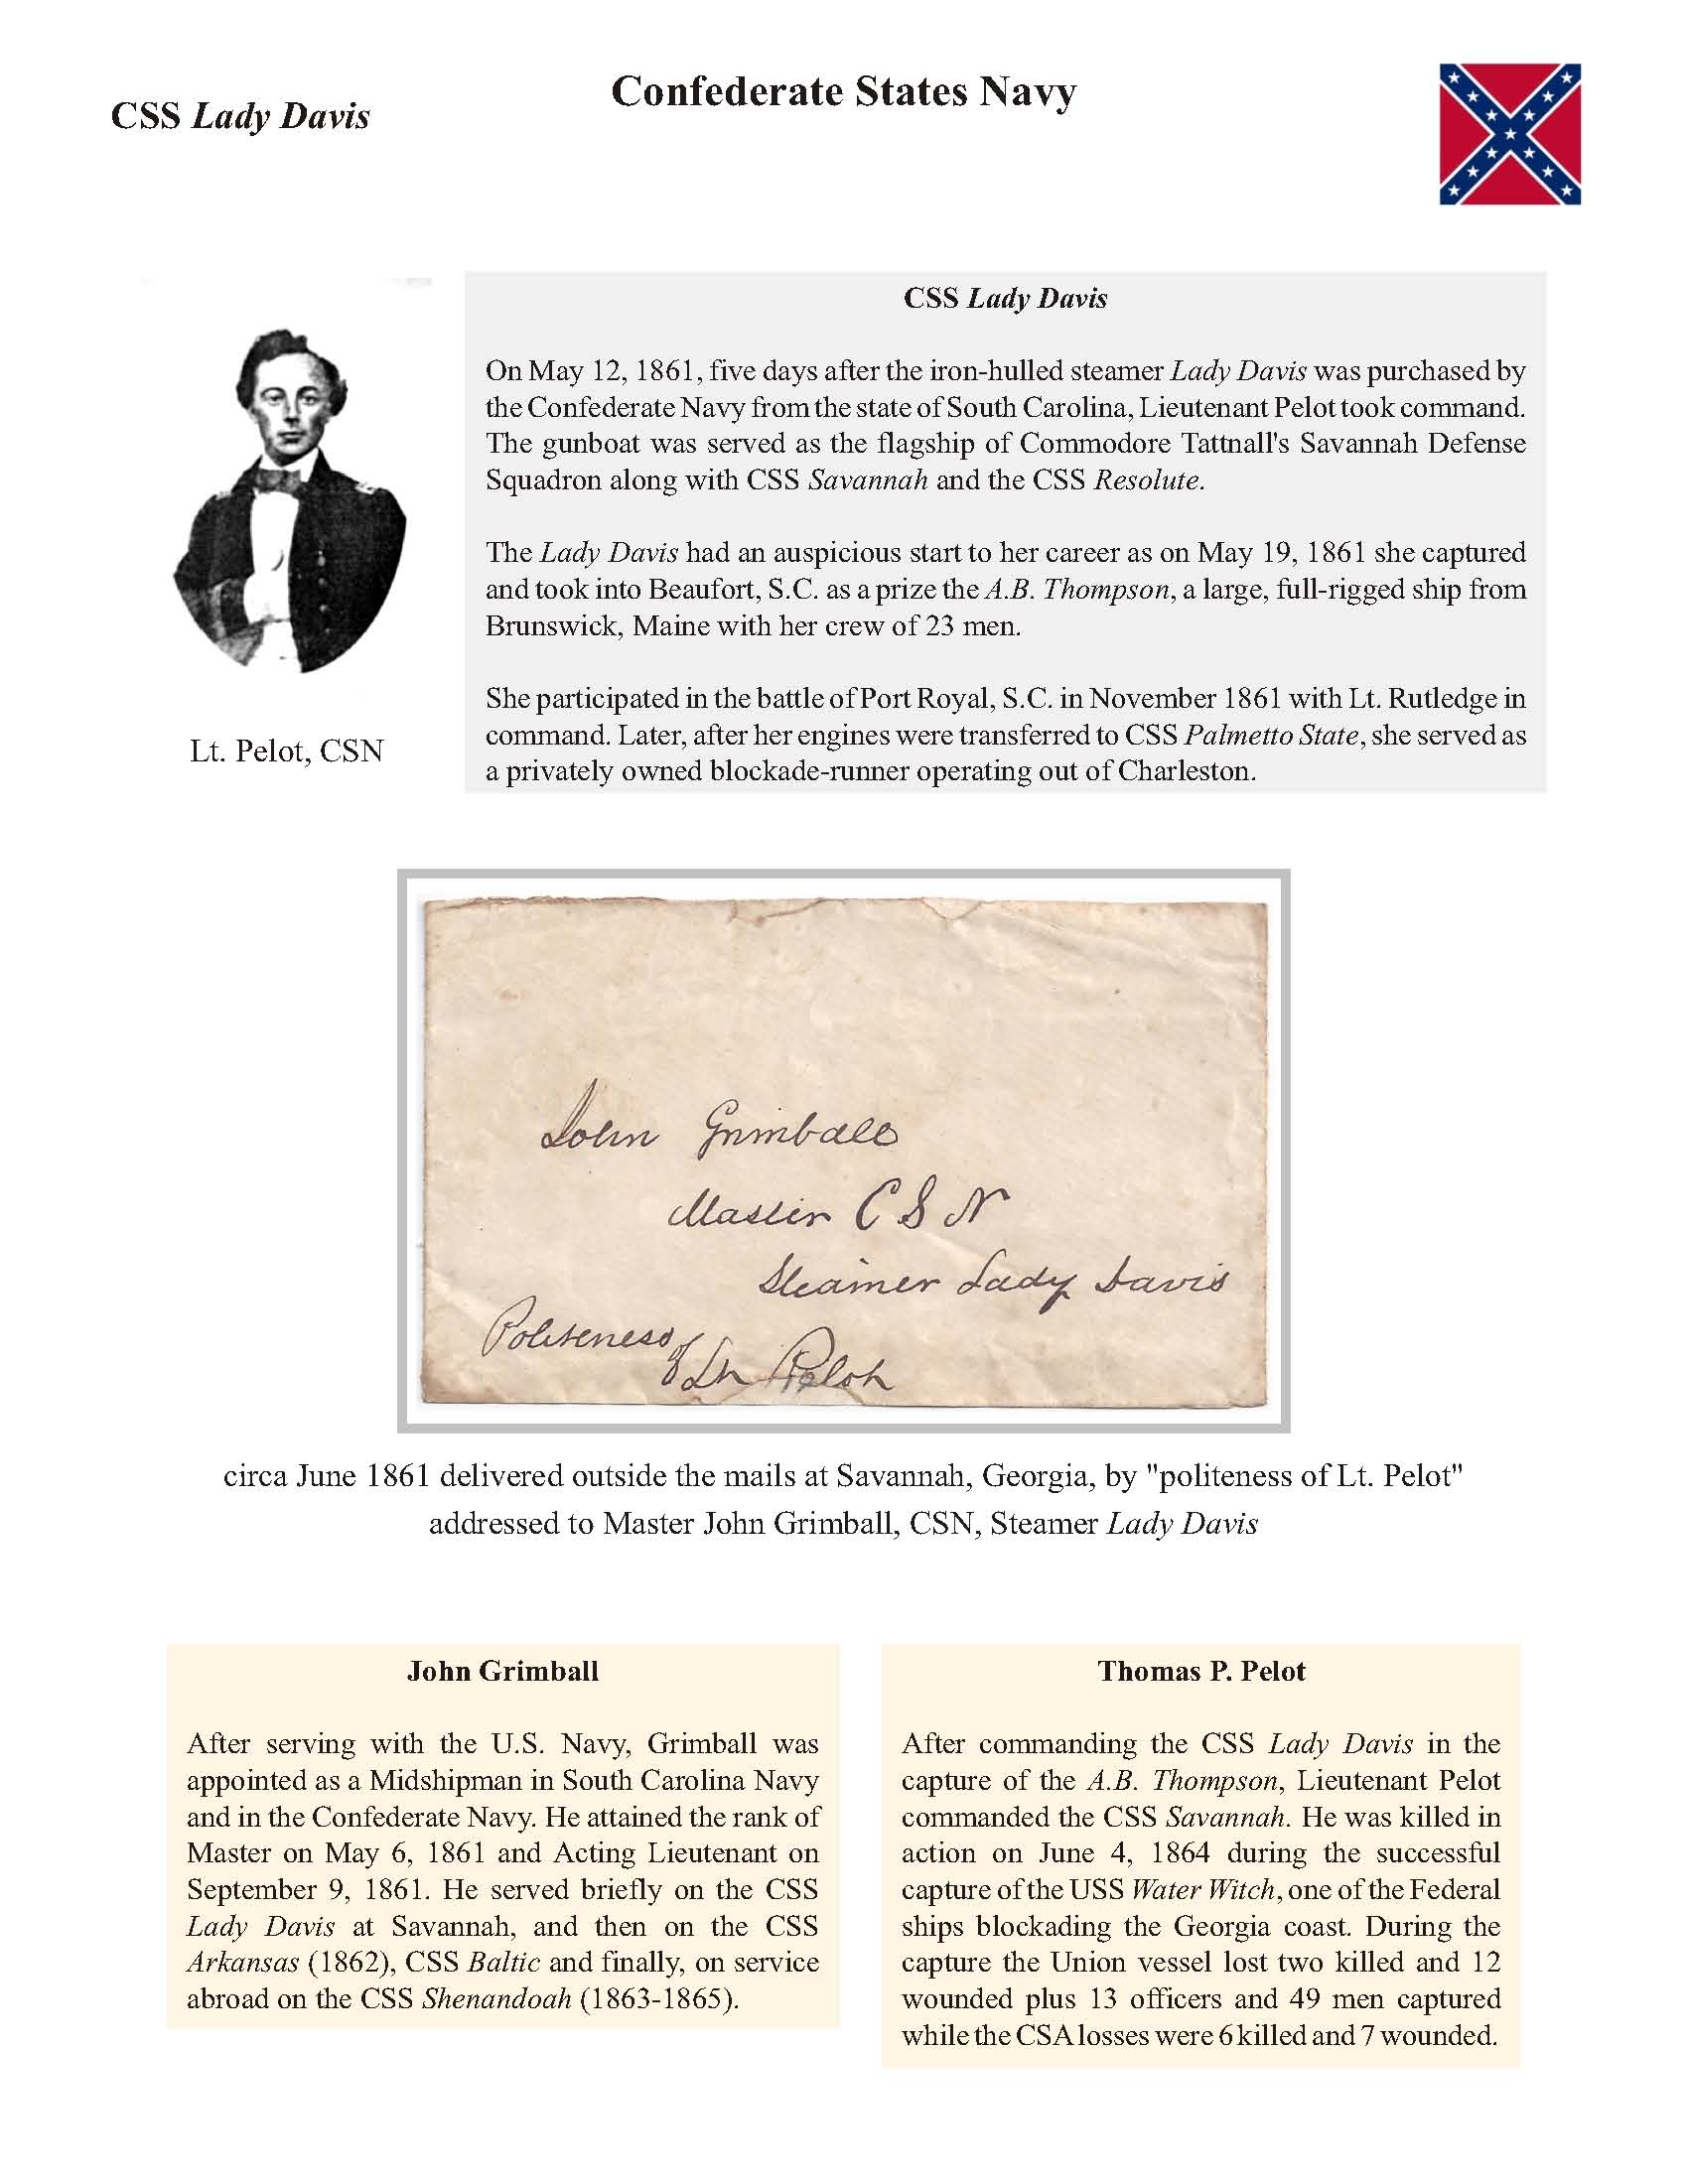 Confederate States Navy
CSS Lady Davis
CSS Lady Davis
On May 12, 1861, five days after the iron-hulled steamer Lady Davis was purchased by
the Confederate Navy from the state of South Carolina, Lieutenant Pelot took command.
The gunboat was served as the flagship of Commodore Tattnall's Savannah Defense
Squadron along with CSS Savannah and the CSS Resolute.
The Lady Davis had an auspicious start to her career as on May 19, 1861 she captured
and took into Beaufort, S.C. as a prize the A.B. Thompson, a large, full-rigged ship from
Brunswick, Maine with her crew of 23 men.
She participated in the battle of Port Royal, S.C. in November 1861 with Lt. Rutledge in
command. Later, after her engines were transferred to CSS Palmetto State, she served as
a privately owned blockade-runner operating out of Charleston.
Lt. Pelot, CSN
John Grimball
Master C S N
Steamer Lady Davis
Politeness
of Lt Pelot
circa June 1861 delivered outside the mails at Savannah, Georgia, by "politeness of Lt. Pelot"
addressed to Master John Grimball, CSN, Steamer Lady Davis
John Grimball
After serving with the U.S. Navy, Grimball was
appointed as a Midshipman in South Carolina Navy
and in the Confederate Navy. He attained the rank of
Master on May 6, 1861 and Acting Lieutenant on
September 9, 1861. He served briefly on the CSS
Lady Davis at Savannah, and then on the CSS
Arkansas (1862), CSS Baltic and finally, on service
abroad on the CSS Shenandoah (1863-1865).
Thomas P. Pelot
After commanding the CSS Lady Davis in the
capture of the A.B. Thompson, Lieutenant Pelot
commanded the CSS Savannah. He was killed in
action on June 4, 1864 during the successful
capture of the USS Water Witch, one of the Federal
ships blockading the Georgia coast. During the
capture the Union vessel lost two killed and 12
wounded plus 13 officers and 49 men captured
while the CSA losses were 6 killed and 7 wounded.